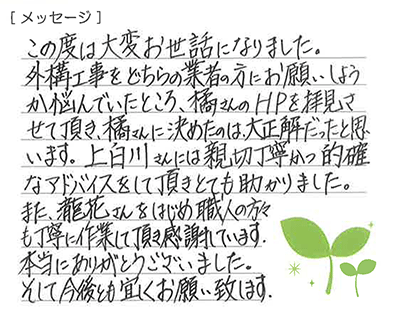 [ メッセージ ]
この度は大変お世話になりました。
外構工事をどちらの業者の方にお願いしよう
か悩んでいたところ、橘さんのHPを拝見さ
せて頂き、橘さんに決めたのは、大正解だったと思
います。上白川さんには親切丁寧かつ的確
なアドバイスをして頂きとても助かりました。
また、瀧花さんをはじめ職人の方々
も丁寧に作業して頂き感謝しています。
本当にありがとうございました。
そして今後とも宜くお願い致します.